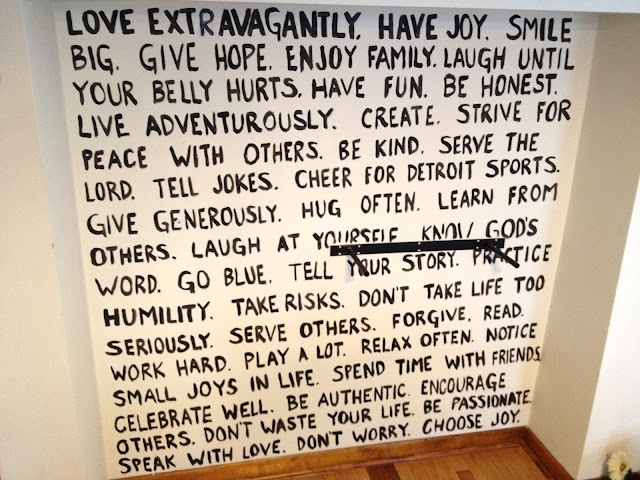 LOVE EXTRAVAGANTLY. HAVE JOY. SMILE
BIG. GIVE HOPE. ENJOY FAMILY. LAUGH UNTIL
YOUR BELLY HURTS. HAVE FUN. BE HONEST.
LIVE ADVENTUROUSLY. CREATE. STRIVE FOR
PEACE WITH OTHERS. BE KIND. SERVE THE
LORD. TELL JOKES. CHEER FOR DETROIT SPORTS.
GIVE GENEROUSLY. HUG OFTEN. LEARN FROM
OTHERS. LAUGH AT YOURSELF. KNOW GOD'S
WORD. GO BLUE. TELL YOUR STORY. PRACTICE
HUMILITY. TAKE RISKS. DON'T TAKE LIFE TOO
SERIOUSLY. SERVE OTHERS. FORGIVE. READ.
WORK HARD. PLAY A LOT. RELAX OFTEN. NOTICE
SMALL JOYS IN LIFE. SPEND TIME WITH FRIENDS.
CELEBRATE WELL. BE AUTHENTIC. ENCOURAGE
OTHERS. DON'T WASTE YOUR LIFE. BE PASSIONATE.
SPEAK WITH LOVE. DON'T WORRY. CHOOSE JOY.